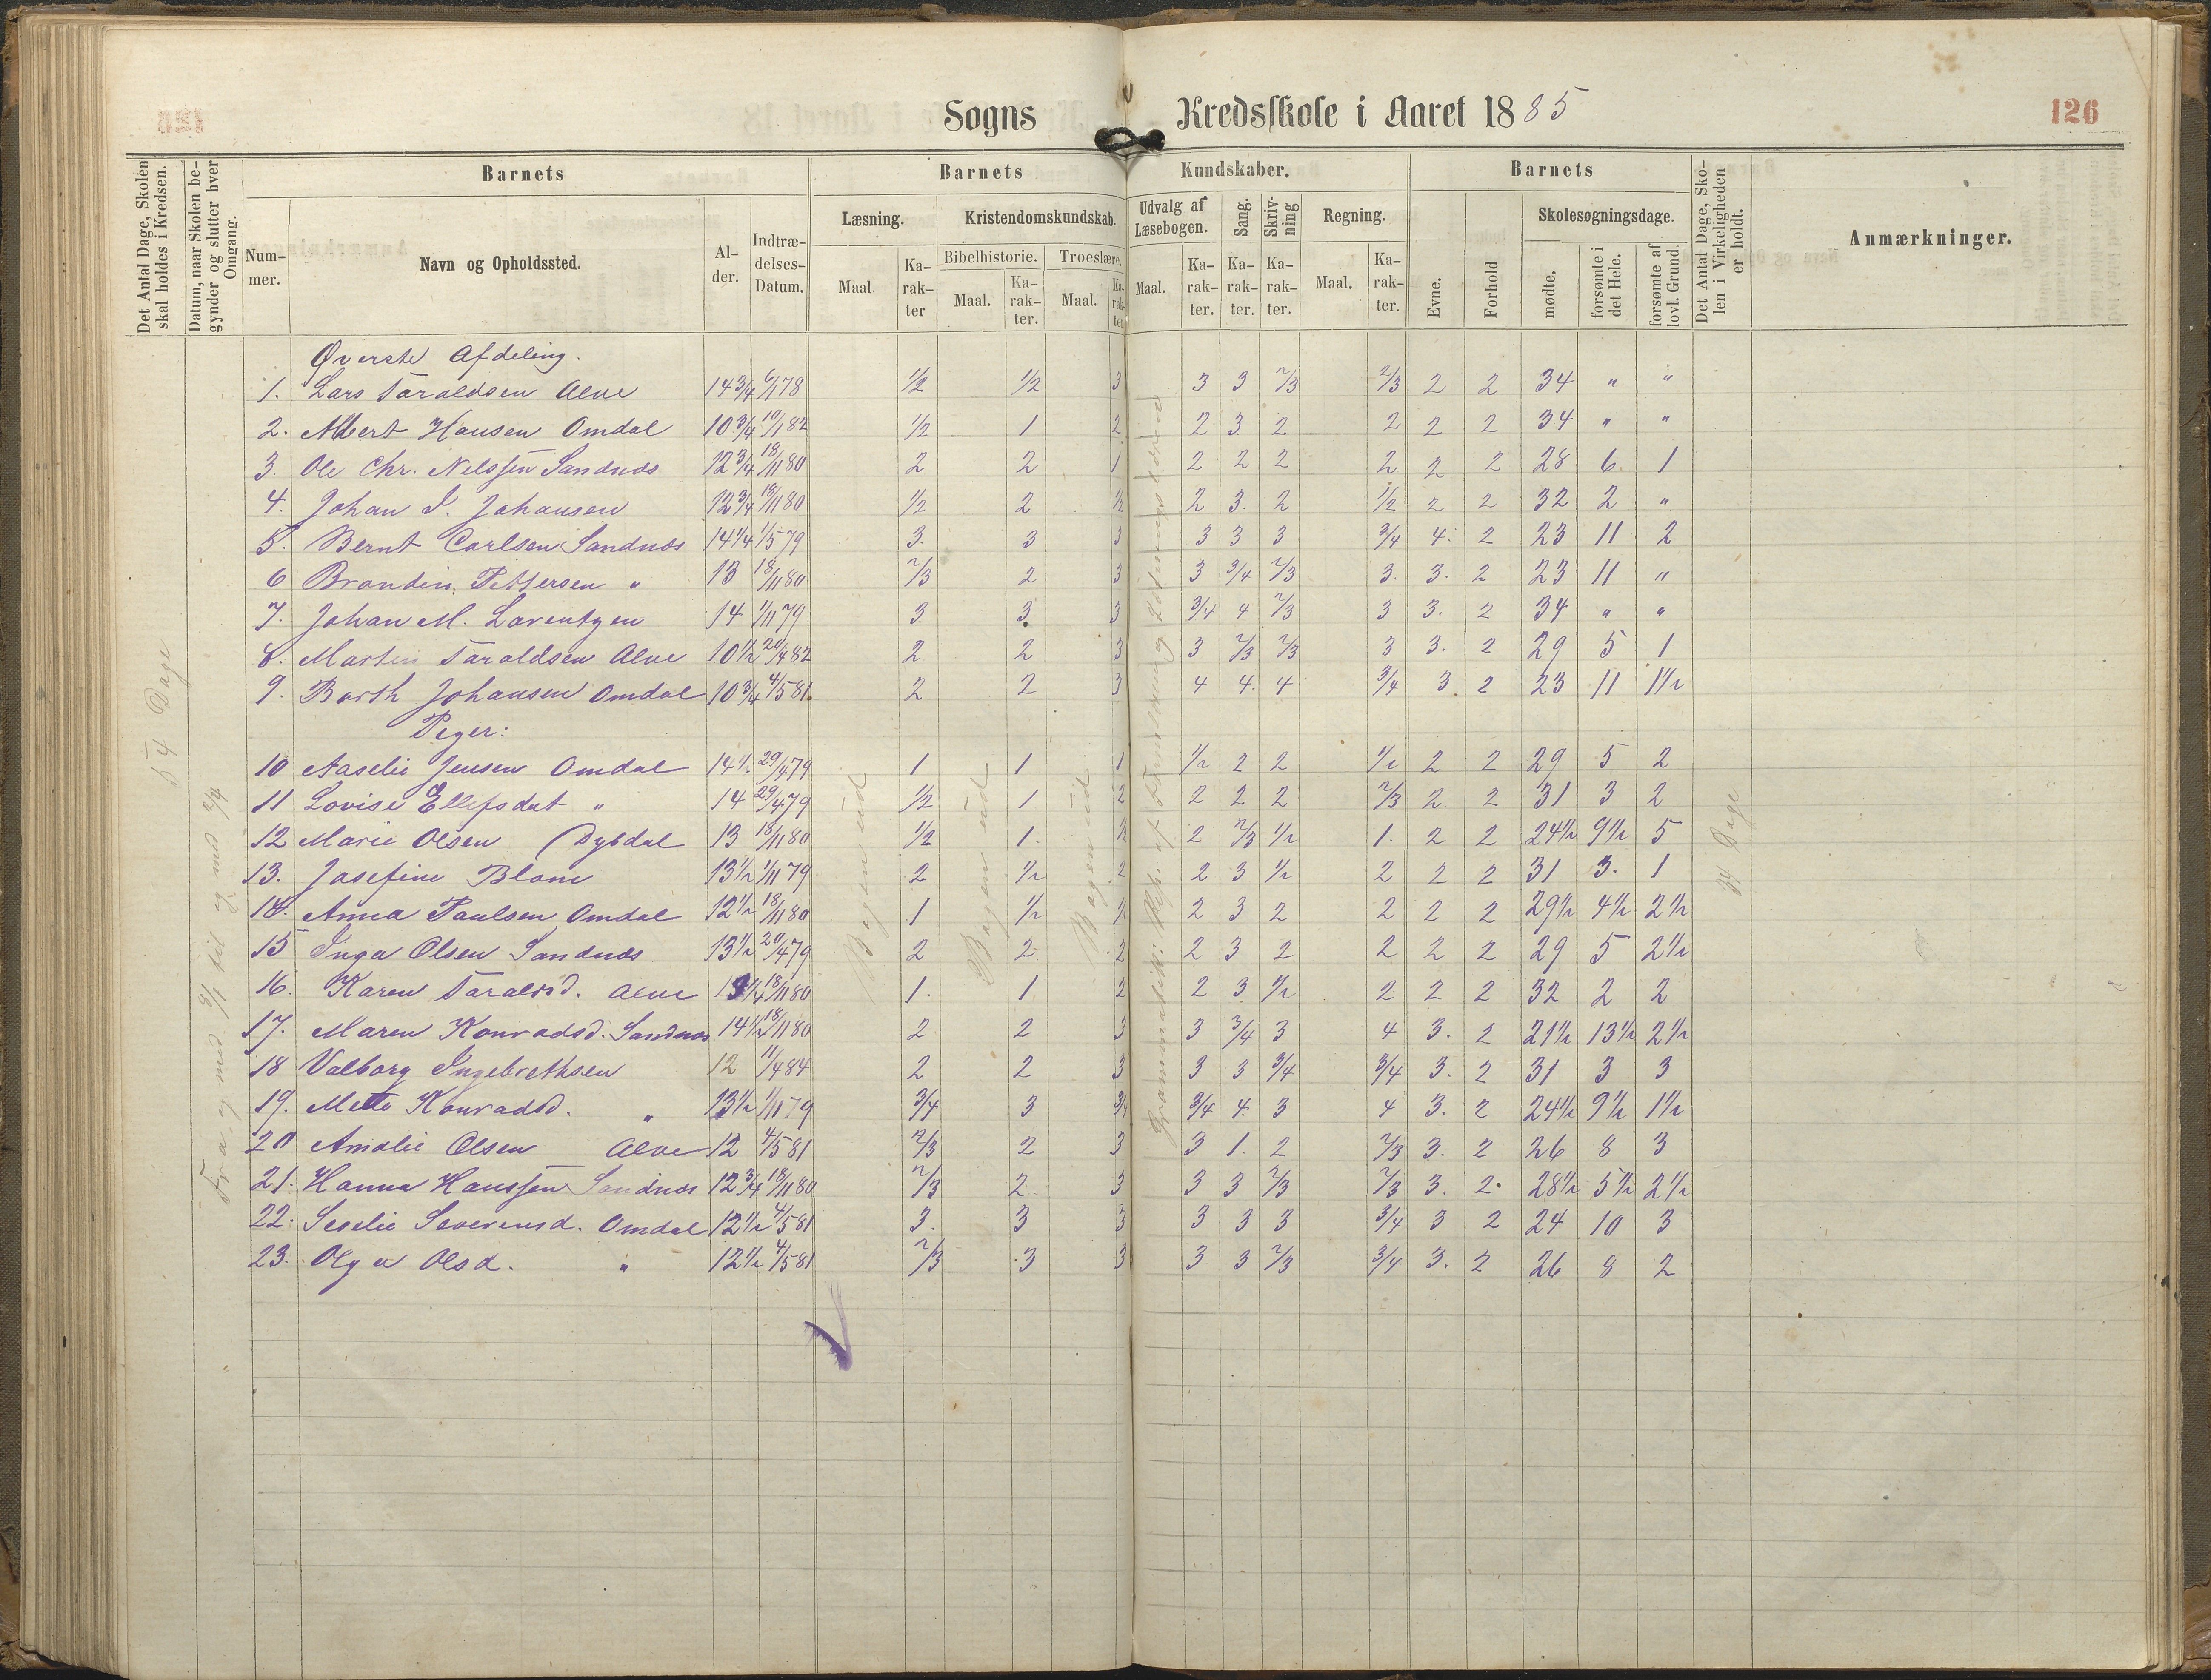 Sogns Kredsskole i Aaret 1885 126
Det Antal Dage, Skolen skal holdes i Kredsen.
Datum, naar Skolen begynder og slutter hver Omgang.
Barnets
Barnets Kundskaber.
Barnets
Det Antal Dage, Skolen i Virkeligheden er holdt.
Anmærkninger.
Nummer.
Navn og Opholdssted.
Alder.
Indtrædelses-Datum.
Læsning.
Kristendomskundskab.
Udvalg af Læsebogen.
Sang.
Skrivning
Regning.
Evne.
Forhold
Skolesøgningsdage.
Bibelhistorie. Troeslære.
Maal. Karakter Maal. Karakter. Maal. Karakter Maal. Karakter. Karakter. Karakter. Maal. Karakter.
mødte. forsømte i det Hele. forsømte af lovl. Grund.
Øverste Afdeling.
1. Lars Taraldsen Alve 14 3/4 6/1 78 1/2 1/2 3 3 3 2/3 2/3 2 2 34 " "
2. Albert Hansen Omdal 10 3/4 10/1 82 1/2 1 2 2 3 2 2 2 2 34 " "
3. Ole Chr. Nelssen Sandnæs 12 3/4 18/11 80 2 2 1 2 2 2 2 2 2 28 6 1
4. Johan I. Johansen 12 3/4 18/11 80 1/2 2 1/2 2 3 2 1/2 2 2 32 2 "
5. Bernt Carlsen Sandnæs 14 1/4 1/5 79 3 3 3 3 3 3 3/4 4 2 23 11 2
6 Brandin Pettersen " 13 18/11 80 2/3 2 3 3 3/4 2/3 3. 3. 2 23 11 "
7. Johan M. Larentzen 14 1/11 79 3 3 3 3/4 4 2/3 3 3. 2 34 " "
8. Martin Taraldsen Alve 10 1/2 20/4 82 2 2 3 3 2/3 2/3 3 3. 2 29 5 1
9. Barth Johansen Omdal 10 3/4 4/5 81 2 2 3 4 4 4 3/4 3. 2 23 11 1 1/2
Piger:
10 Aaselie Jensen Omdal 14 1/2 29/4 79 1 1 1 1/2 2 2 1/2 2 2 29 5 2
11 Lovise Ellefsdat " 14 29/4 79 1/2 1 2 2 2 2 2/3 2 2 31 3 2
12 Marie Olsen Dybdal 13 18/11 80 1/2 1. 1/2 2 2/3 1/2 1. 2 2 24 1/2 9 1/2 5
13. Josefine Blom 13 1/2 1/11 79 2 1/2 2 2 3 1/2 2 2 2 31 3. 1
14. Anna Paulsen Omdal 12 1/2 18/11 80 1 1/2 1/2 2 3 2 2 2 2 29 1/2 4 1/2 2 1/2
15 Inga Olsen Sandnæs 13 1/2 20/4 79 2 2 2 2 3 2 2 2 2 29 5 2 1/2
16. Karen Taraldsd. Alve 18/11 80 1. 1 2 2 3 1/2 2 2 2 32 2 2
17. Maren Konradsd. Sandnæs 14 1/2 18/11 80 2 2 3 3 3/4 3 4 3. 2 21 1/2 13 1/2 2 1/2
18 Valborg Ingebrethsen 12 1/4 84 2 2 3 3 3 3/4 3/4 3. 2 31 3 3
19. Mette Konradsd. " 13 1/2 1/11 79 3/4 3 3/4 3/4 4 3 4 3. 2 24 1/2 9 1/2 1 1/2
20 Amalie Olsen Alve 12 4/5 81 2/3 2 3 3 1. 2 2/3 3. 2 26 8 3
21. Hanna Hanssen Sandnæs 12 3/4 18/11 80 2/3 2 3 3 3 2/3 2/3 3. 2. 28 1/2 5 1/2 2 1/2
22. Seselie Severinsd. Omdal 12 1/2 4/5 81 3. 3 3 3 3 3 3/4 3 2 24 10 3
23. Olga Olsd. " 12 1/2 4/5 81 2/3 3 3 3 3 2/3 3/4 3. 2 26 8 2
54 Dage
Fra og med til og med
Bogen ud
Bogen ud
Bogen ud
Grammatik:
34 Dage